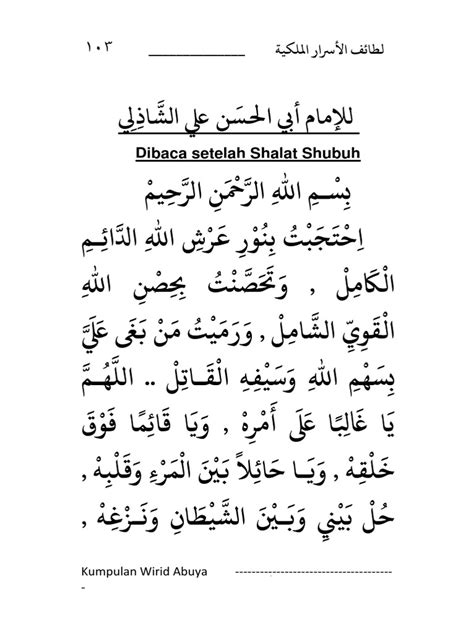 لطائف الأسرار الملكية ______________ ١٠٣
للإمام أبي الحسَن علي الشَّاذِلِي
Dibaca setelah Shalat Shubuh
بِسْـمِ اللهِ الرَّحْمَنِ الرَّحِيمْ
اِحْتَجَبْتُ بِنُوْرِ عَرْشِ اللهِ الدَّائِـمِ
الْكَامِلْ , وَتَحَصَّنْتُ بِحِصْنِ اللهِ
الْقَوِيِّ الشَّامِلْ , وَرَمَيْتُ مَنْ بَغَى عَلَيَّ
بِسَهْمِ اللهِ وَسَيْفِهِ الْقَـاتِلْ .. اللَّهُـمَّ
يَا غَالِبًا عَلَى أَمْرِهْ , وَيَا قَائِمًا فَوْقَ
خَلْقِهْ , وَيَـا حَائِلاً بَيْنَ الْمَرْءِ وَقَلْبِهْ ,
حُلْ بَيْنِي وَبَـيْنَ الشَّيْطَانِ وَنَـزْغِهْ ,
Kumpulan Wirid Abuya --------------------------------------
-